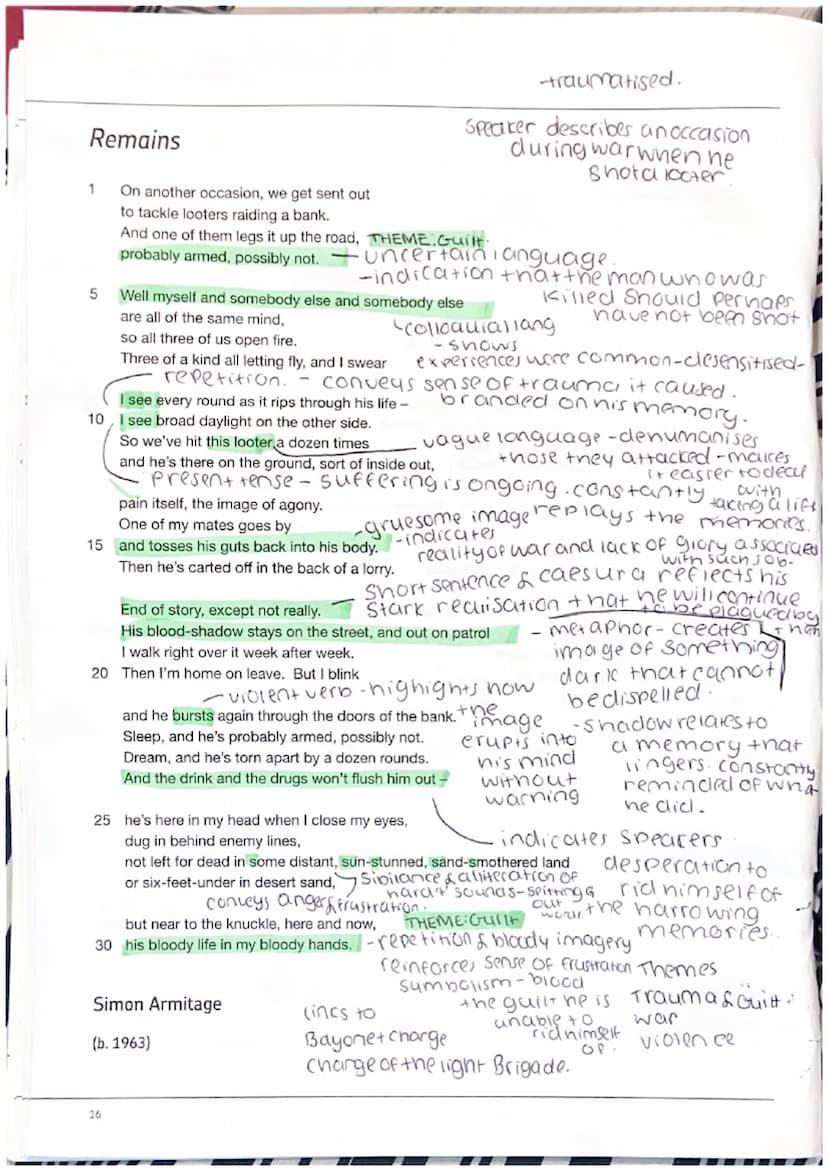 traumatised.
Remains
Speaker describes an occasion
during war when he
shot a looter.
1 On another occasion, we get sent out
to tackle looters raiding a bank.
And one of them legs it up the road, THEME: Guilt.
probably armed, possibly not. — uncertain language.
- indication that the man who was
killed should perhaps
have not been shot
5 Well myself and somebody else and somebody else
are all of the same mind,
so all three of us open fire.
Three of a kind all letting fly, and I swear
colloquial lang
- shows
experiences were common - desensitised -
repetition. - conveys sense of trauma it caused.
branded on his memory.
I see every round as it rips through his life –
10 I see broad daylight on the other side.
So we've hit this looter a dozen times
and he's there on the ground, sort of inside out,
vague language - dehumanises
those they attacked - makes
it easier to deal
with
taking a life
present tense - suffering is ongoing. constantly
replays the memories.
pain itself, the image of agony.
One of my mates goes by
15 and tosses his guts back into his body.
Then he's carted off in the back of a lorry.
- gruesome image
- indicates
reality of war and lack of glory associated
with such job.
short sentence & caesura reflects his
stark realisation that he will continue
to be plagued by
End of story, except not really.
His blood-shadow stays on the street, and out on patrol
I walk right over it week after week.
20 Then I'm home on leave. But I blink
- metaphor - creates
image of something
dark that cannot
be dispelled.
- violent verb - highights how
the
image
erupts into
his mind
without
warning
and he bursts again through the doors of the bank.
Sleep, and he's probably armed, possibly not.
Dream, and he's torn apart by a dozen rounds.
And the drink and the drugs won't flush him out –
- shadow relates to
a memory that
lingers. constantly
reminded of what
he did.
25 he's here in my head when I close my eyes,
dug in behind enemy lines,
not left for dead in some distant, sun-stunned, sand-smothered land
or six-feet-under in desert sand,
indicates speakers
desperation to
rid himself of
the harrowing
memories.
sibilance & alliteration of
hard t sounds - spitting
out words.
conveys anger & frustration.
but near to the knuckle, here and now, THEME: Guilt
30 his bloody life in my bloody hands.
- repetition & bloody imagery
reinforces sense of frustration
symbolism - blood
the guilt he is
unable to
rid himself
of.
Themes
Trauma & Guilt.
war
violence
Simon Armitage
(b. 1963)
lincs to
Bayonet charge
charge of the light Brigade.
16